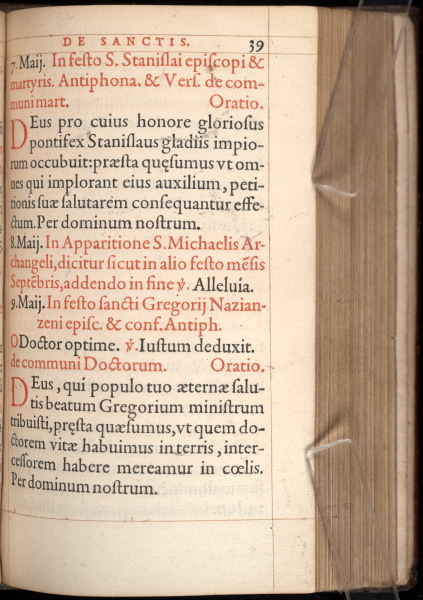 DE SANCTIS. 39
7. Maij. In feſto S. Staniſlai epiſcopi &
martyris. Antiphona. & Verſ. de com-
muni mart. Oratio.
DEus pro cuius honore glorioſus
pontifex Staniſlaus gladiis impio-
rum occubuit: præſta quęſumus vt om-
nes qui implorant eius auxilium, peti-
tionis ſuæ ſalutarem conſequantur effe-
ctum. Per dominum noſtrum.
8. Maij. In Apparitione S. Michaelis Ar-
changeli, dicitur ſicut in alio feſto mẽſis
Septẽbris, addendo in fine ℣. Alleluia.
9. Maij. In feſto ſancti Gregorij Nazian-
zeni epiſc. & conf. Antiph.
O Doctor optime. ℣. Iuſtum deduxit.
de communi Doctorum. Oratio.
DEus, qui populo tuo æternæ ſalu-
tis beatum Gregorium miniſtrum
tribuiſti, pręſta quæſumus, vt quem do-
ctorem vitæ habuimus in terris, inter-
ceſſorem habere mereamur in cœlis.
Per dominum noſtrum.